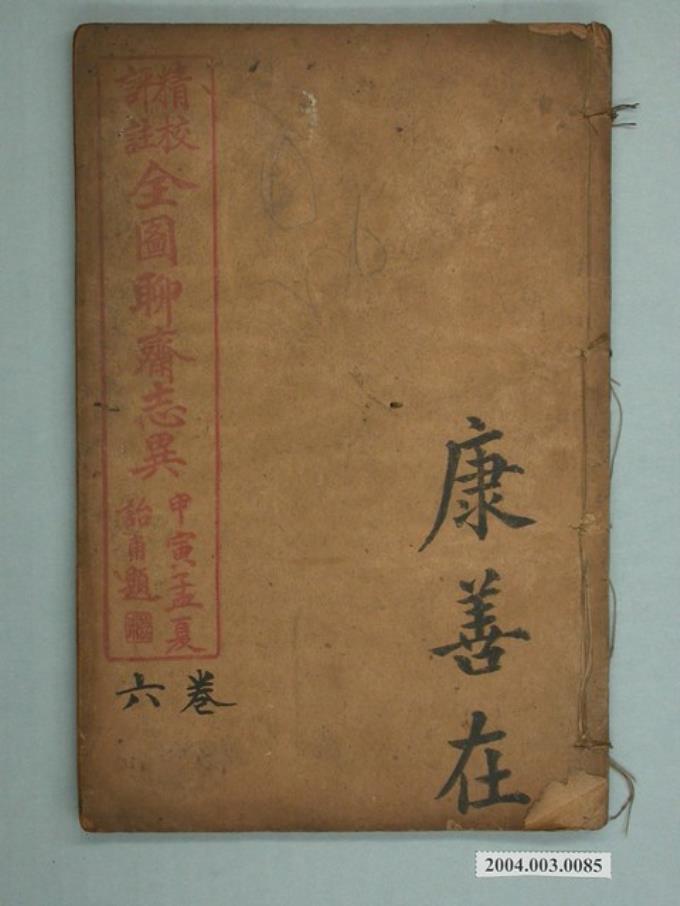 精校
評註
全圖聊齋志異
甲寅孟夏
詒甫題
卷六
康善在
2004.003.0085